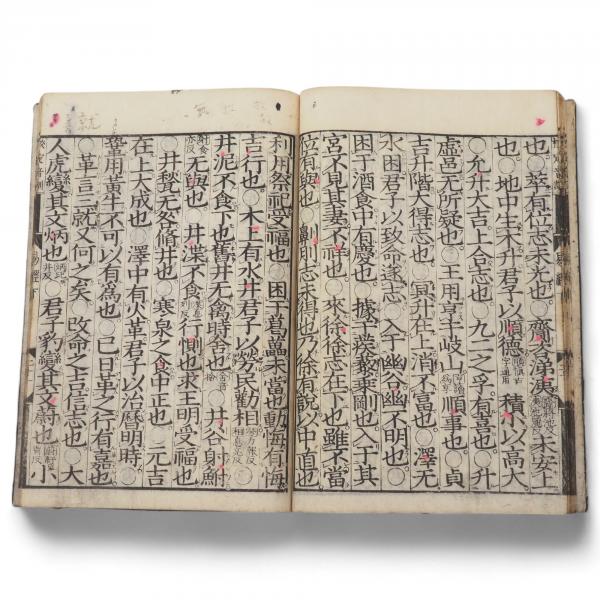 也○萃有位志未光也○齎咨涕洟未安上
也○地中生木升君子以順德積小以高大
○允升大吉上合志也○九二之孚有喜也○升
虛邑无所疑也○王用亨于岐山順事也○貞
吉升階大得志也○冥升在上消不富也○澤无
水困君子以致命遂志○入于幽谷幽不明也○
困于酒食中有慶也○據于蒺藜乘剛也入于其
宮不見其妻不祥也○來徐徐志在下也雖不當
位有與也○劓刖志未得也乃徐有說以中直也
利用祭祀受福也○困于葛藟未當也動悔有悔
吉行也○木上有水井君子以勞民勸相
井泥不食下也舊井无禽時舍也○井谷射鮒
无與也○井渫不食行惻也求王明受福也
○井甃无咎脩井也○寒泉之食中正也○元吉
在上大成也○澤中有火革君子以治曆明時○
鞏用黃牛不可以有爲也○巳日革之行有嘉也
○革言三就又何之矣○改命之吉信志也○大
人虎變其文炳也○君子豹變其文蔚也○小
易經下
就